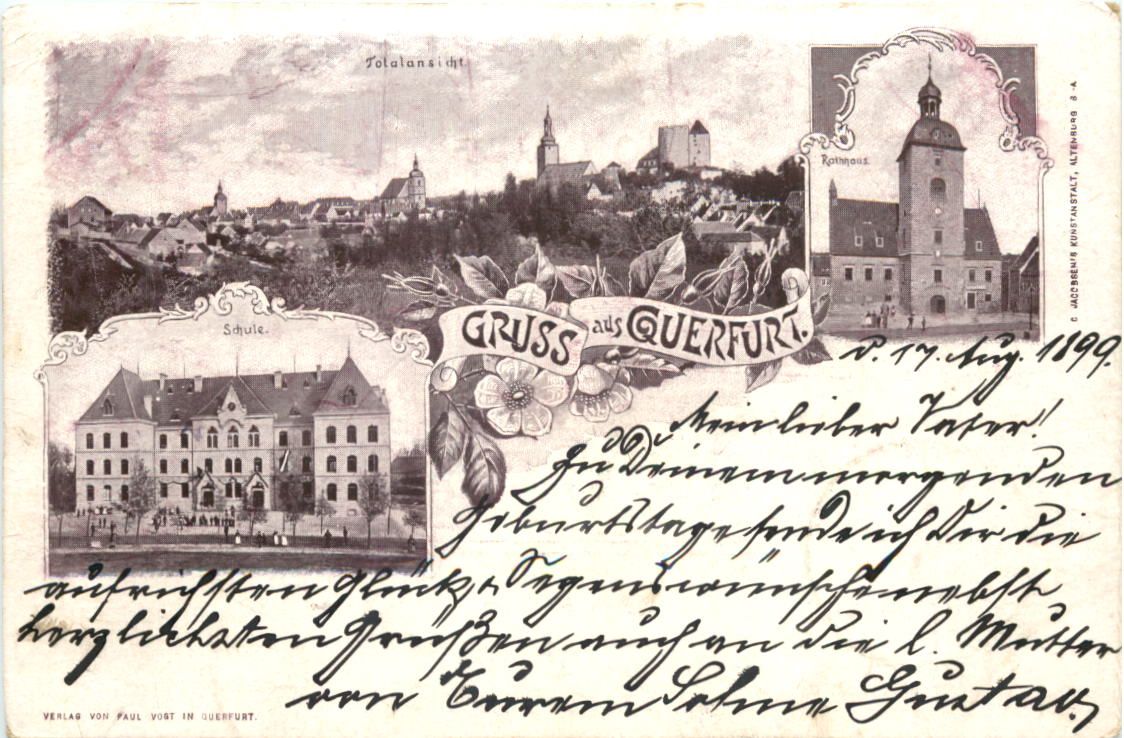 Totalansicht
Rathhaus.
Schule.
GRUSS aus QUERFURT.
C. JACOBSEN'S KUNSTANSTALT, ALTENBURG S.-A.
d. 17. Aug. 1899.
Mein lieber Vater!
Zu Deinem morgenden
Geburtstage sende ich Dir die
aufrichsten Glück- & Segenswünsche nebst
herzlichsten Grüßen auch an die l. Mutter
von Eurem Sohne Gustav.
VERLAG VON PAUL VOGT IN QUERFURT.